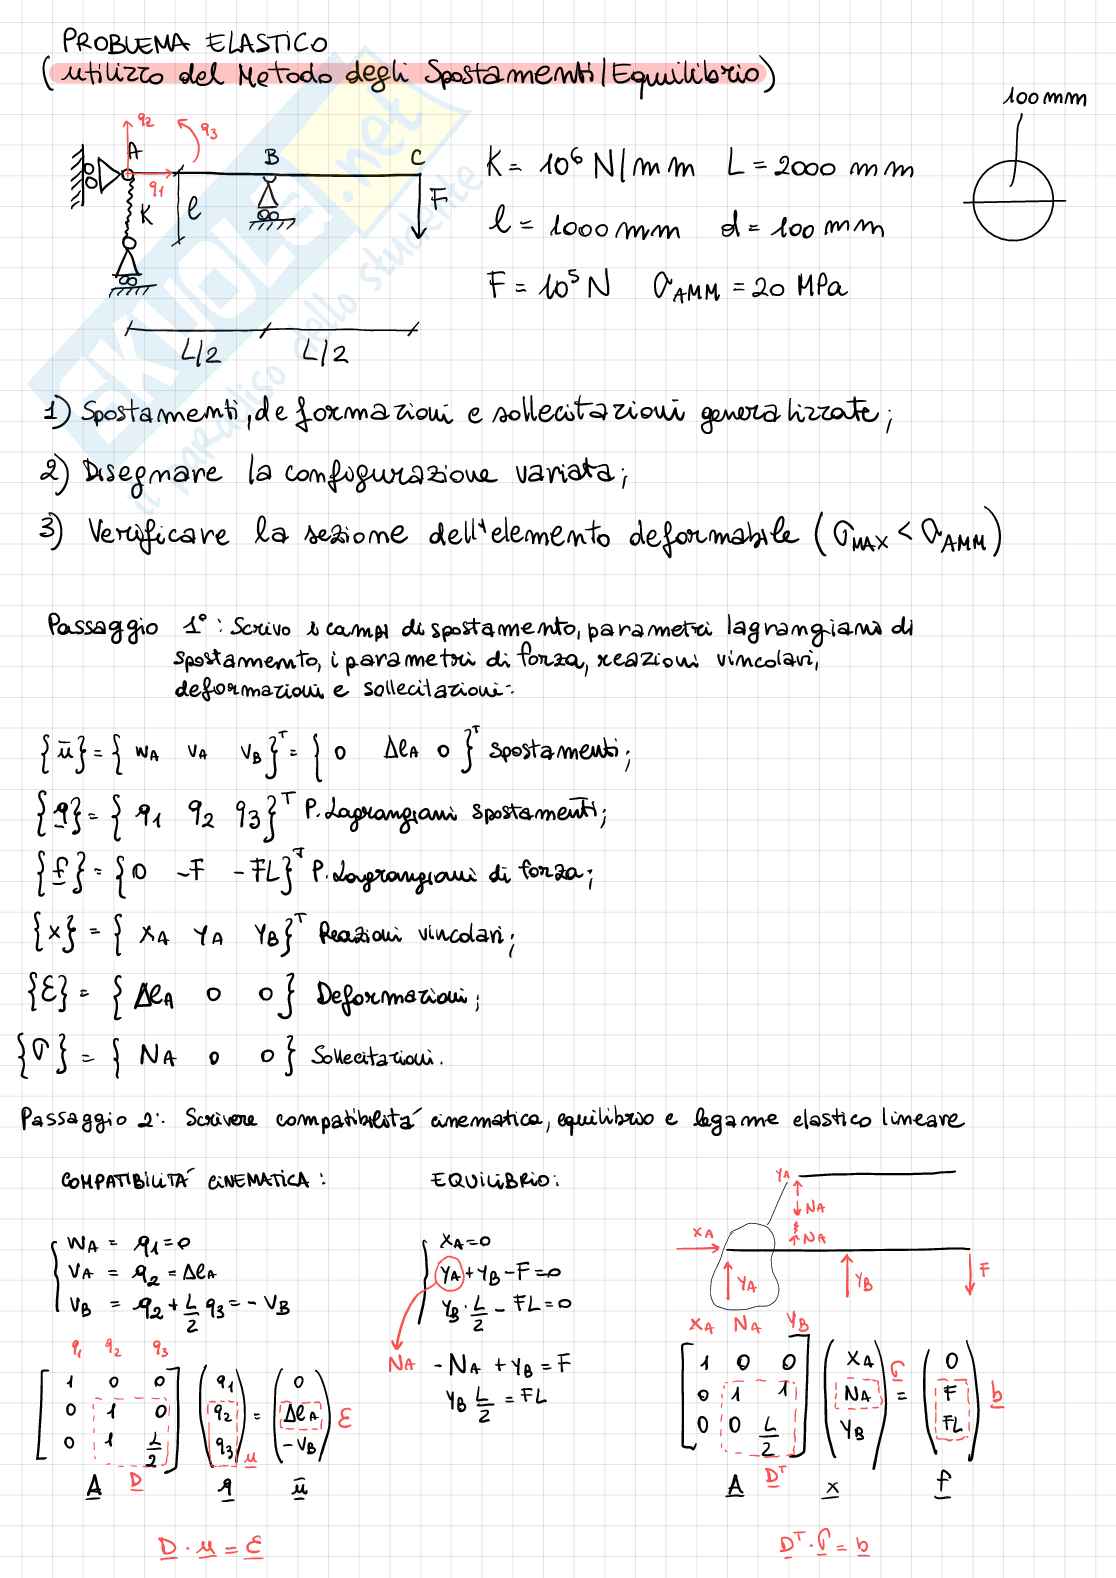 PROBLEMA ELASTICO
(utilizzo del Metodo degli Spostamenti/Equilibrio)
100 mm
q2
q3
A
B
C
q1
K
l
F
K = 10⁶ N/mm L = 2000 mm
l = 1000 mm d = 100 mm
F = 10⁵ N σAMM = 20 MPa
L/2 L/2
SKUOLA.net
il paradiso dello studente
1) Spostamenti, deformazioni e sollecitazioni generalizzate;
2) Disegnare la configurazione variata;
3) Verificare la sezione dell'elemento deformabile (σMAX < σAMM)
Passaggio 1°: Scrivo i campi di spostamento, parametri lagrangiani di
spostamento, i parametri di forza, reazioni vincolari,
deformazioni e sollecitazioni:
{ū} = { wA vA vB }ᵀ = { 0 ΔlA 0 }ᵀ spostamenti;
{q} = { q1 q2 q3 }ᵀ P. Lagrangiani spostamenti;
{f} = { 0 -F -FL }ᵀ P. Lagrangiani di forza;
{x} = { XA YA YB }ᵀ Reazioni vincolari;
{ε} = { ΔlA 0 0 } Deformazioni;
{σ} = { NA 0 0 } Sollecitazioni.
Passaggio 2: Scrivere compatibilità cinematica, equilibrio e legame elastico lineare
COMPATIBILITÀ CINEMATICA:
wA = q1 = 0
vA = q2 = ΔlA
vB = q2 + L/2 q3 = - vB
q1 q2 q3
1 0 0 q1 0
0 1 0 q2 = ΔlA ε
0 1 L/2 q3 u -vB
A D q ū
D · u = ε
EQUILIBRIO:
XA = 0
YA + YB - F = 0
YB · L/2 - FL = 0
NA - NA + YB = F
YB L/2 = FL
YA
NA
XA NA
YA YB F
XA NA YB
1 0 0 XA σ 0
0 1 1 NA = F b
0 0 L/2 YB FL
A Dᵀ x f
Dᵀ · σ = b